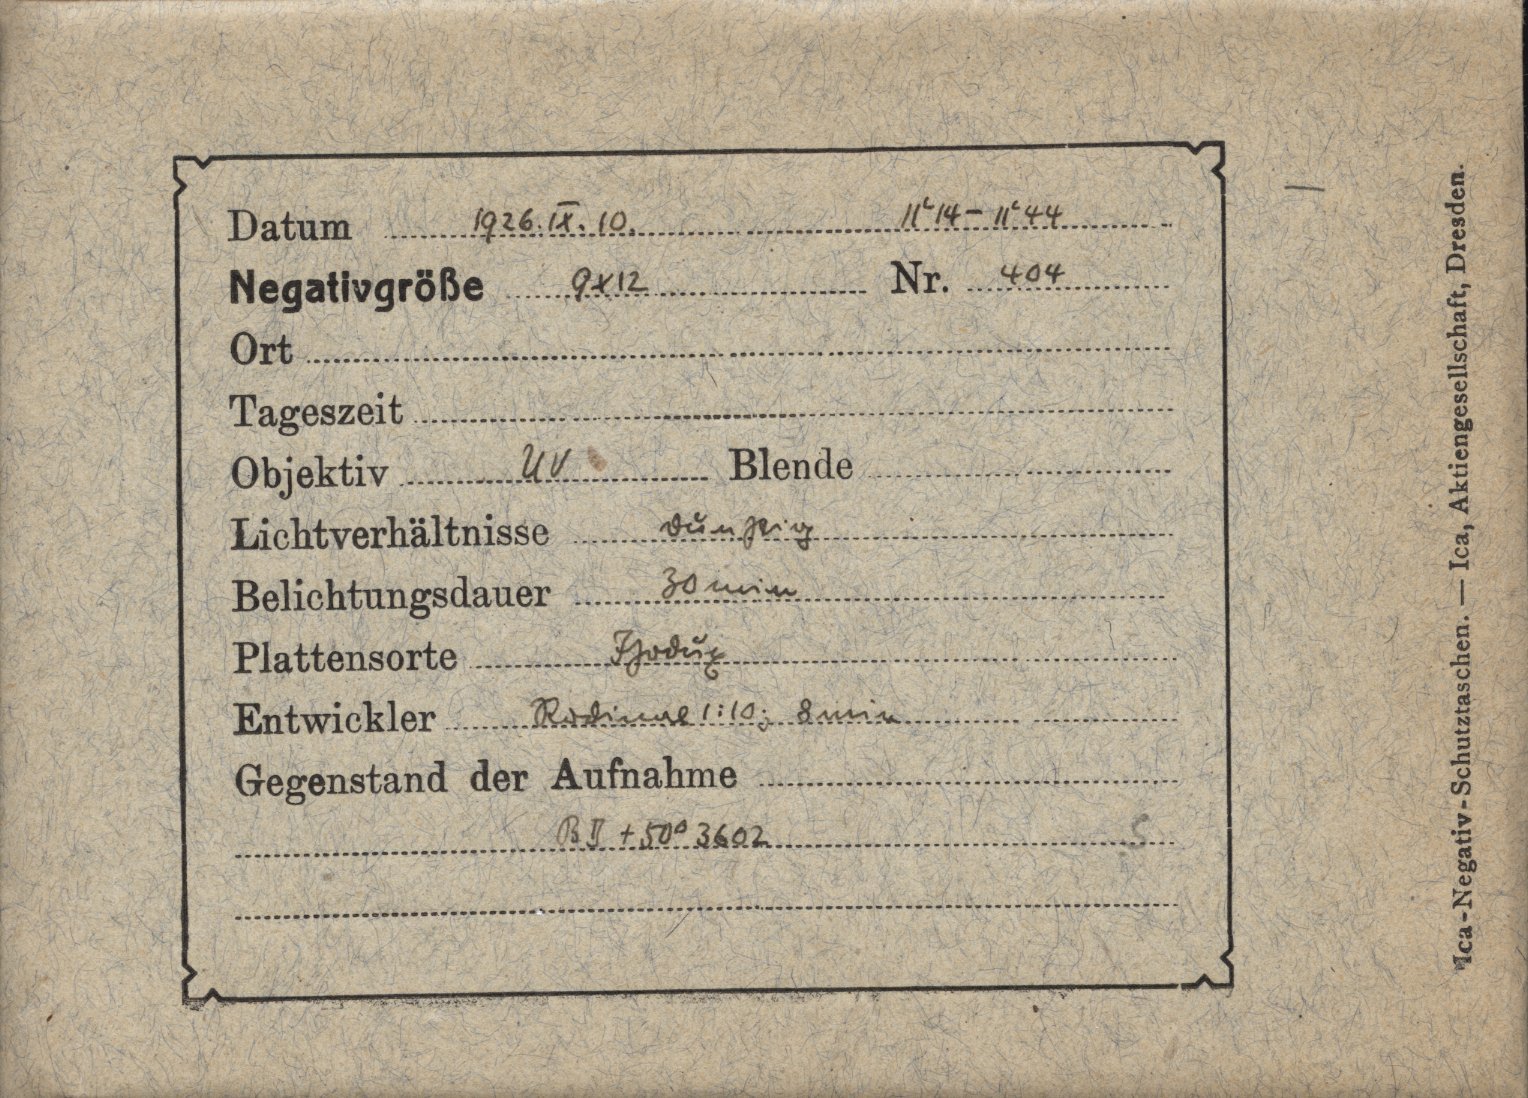 Datum 1926.IX.10. 11ʰ14 - 11ʰ44
Negativgröße 9x12 Nr. 404
Ort
Tageszeit
Objektiv UV Blende
Lichtverhältnisse dunstig
Belichtungsdauer 30 min
Plattensorte
Entwickler Rodinal 1:10; 8 min
Gegenstand der Aufnahme
BD +50° 3602
Ica-Negativ-Schutztaschen. — Ica, Aktiengesellschaft, Dresden.